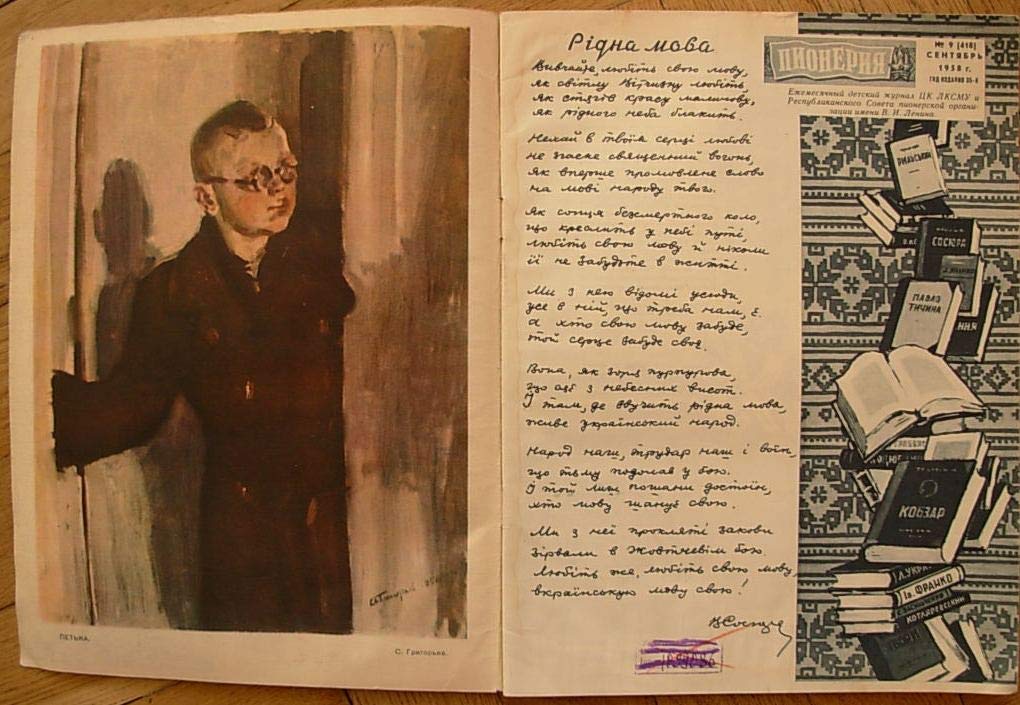 ПЕТЬКА.
С. Григорьев.
Рідна мова
Вивчайте, любіть свою мову,
як світлу Вітчизну любіть,
як стягів красу малинову,
як рідного неба блакить.
Нехай в твоїм серці любові
не згасне священний вогонь,
як вперше промовлене слово
на мові народу твого.
Як сонця безсмертного коло,
що креслить у небі путі,
любіть свою мову й ніколи
її не забудьте в житті.
Ми з нею відомі усюди,
усе в ній, що треба нам, є,
а хто свою мову забуде,
той серце забуде своє.
Вона, як зоря пурпурова,
що сяє з небесних висот.
І там, де звучить рідна мова,
живе український народ.
Народ наш, трудар наш і воїн,
що тьму подолав у бою.
І той лиш пошани достоїн,
хто мову шанує свою.
Ми з неї прокляті закови
зірвали в Жовтневім бою.
Любіть же, любіть свою мову,
вкраїнську мову свою!
В Сосюра
ПИОНЕРИЯ
№ 9 (418)
СЕНТЯБРЬ
1958 г.
ГОД ИЗДАНИЯ
Ежемесячный детский журнал ЦК ЛКСМУ и
Республиканского Совета пионерской органи-
зации имени В. И. Ленина.
РИЛЬСЬКИЙ
СОСЮРА
ПАВЛО
ТИЧИНА
КОБЗАР
Л. УКР
Ів. ФРАНКО
КОТЛЯРЕВСЬКИЙ